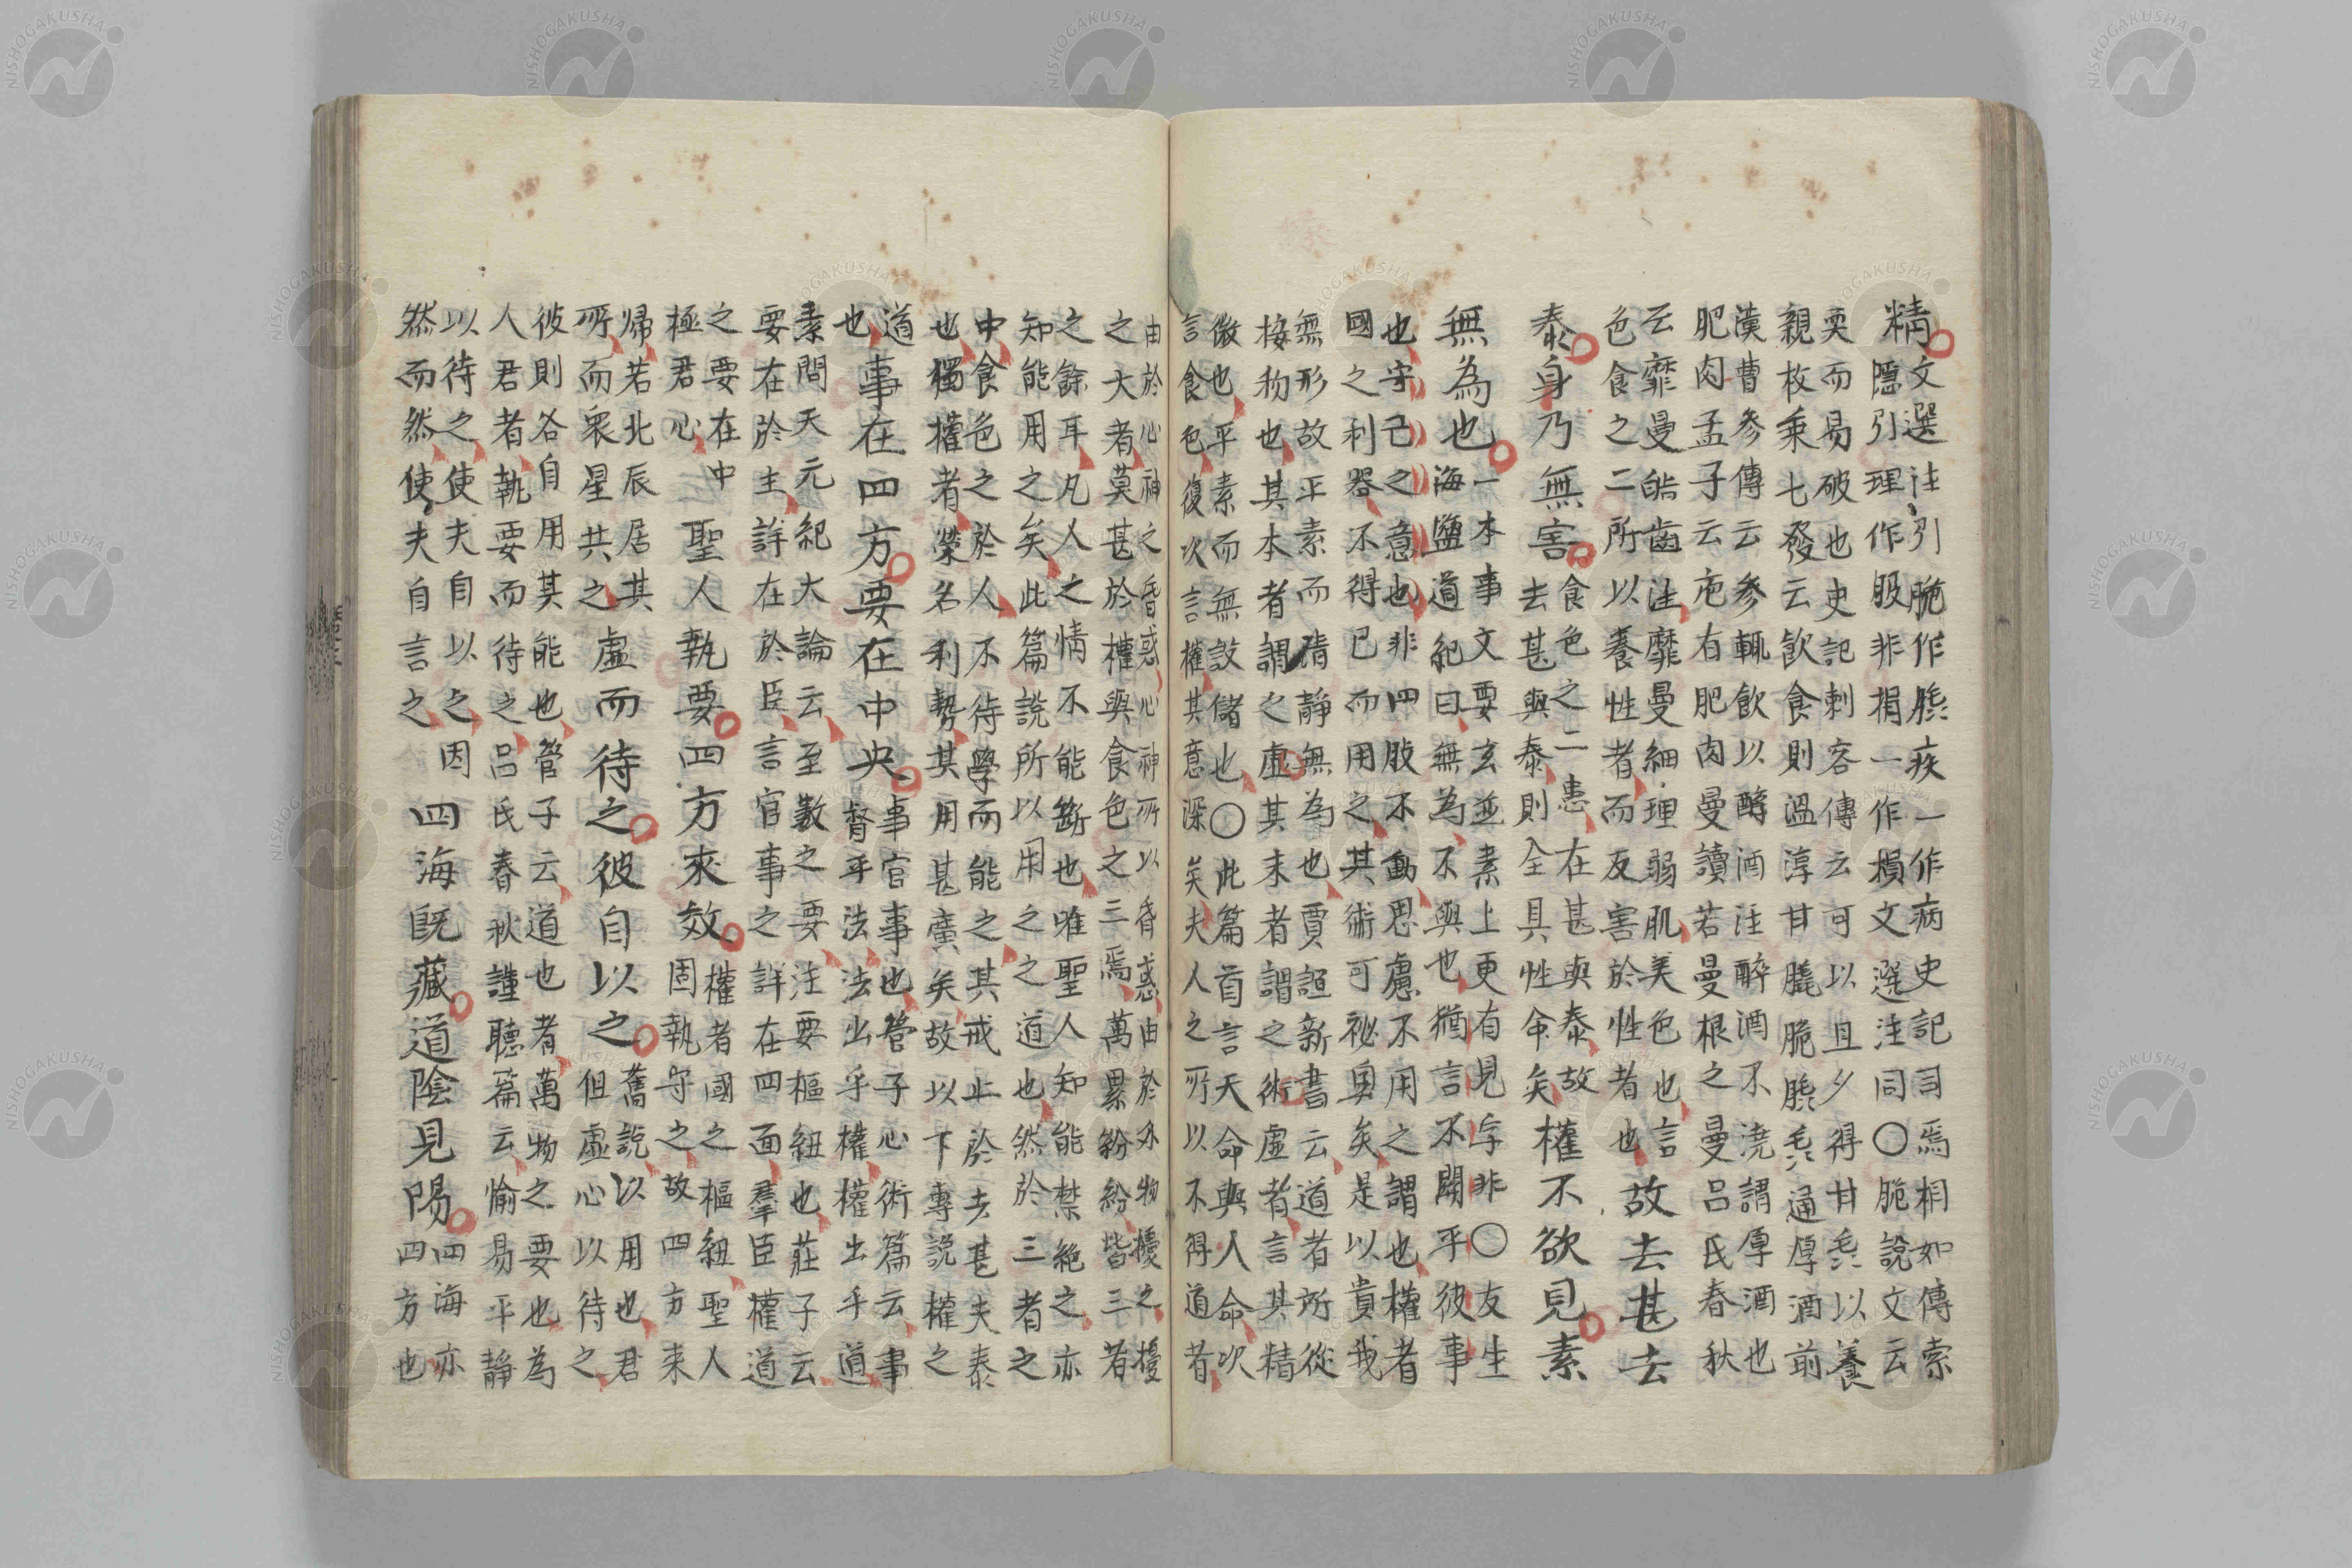 精
文選注引脆作脃疾一作病史記司馬相如傳索
隱引理作股非捐一作損文選注同〇脆說文云
耎而易破也史記刺客傳云可以旦夕得甘毳以養
親枚乘七發云飲食則溫淳甘膬脆脃毳通厚酒前
漢曹參傳云參輒飲以醇酒注醇酒不澆謂厚酒也
肥肉孟子云庖有肥肉曼讀若曼根之曼呂氏春秋
云靡曼皓齒注靡曼細理弱肌美色也言
色食之二所以養性者而反害於性者也
故去甚去
泰身乃無害
食色之二患在甚與泰故
去甚與泰則全具性命矣
權不欲見素
無為也
一本事文要玄並素上更有見字非〇友生
海鹽道紀曰無為不與也猶言不關乎彼事
也守己之意也非四肢不動思慮不用之謂也權者
國之利器不得已而用之其術可祕奧矣是以貴我
無形故平素而清靜無為也賈誼新書云道者所從
接物也其本者謂之虛其末者謂之術虛者言其精
微也平素而無設儲也〇此篇首言天命與人命次
言食色復次言權其意深矣夫人之所以不得道者
由於心神之昏惑心神所以昏惑由於外物擾之擾
之大者莫甚於權與食色之三焉萬累紛紛皆三者
之餘耳凡人之情不能斷也唯聖人知能禁絕之亦
知能用之矣此篇說所以用之之道也然於三者之
中食色之於人不待學而能之其戒止於去甚夫泰
也獨權者榮名利勢其用甚廣矣故以下專說權之
道
也
事在四方要在中央
事官事也管子心術篇云事
督乎法法出乎權權出乎道
素問天元紀大論云至數之要注要樞紐也莊子云
要在於主詳在於臣言官事之詳在四面羣臣權道
之要在中
極君心
聖人執要四方來效
權者國之樞紐聖人
固執守之故四方来
歸若北辰居其
所而衆星共之
虛而待之彼自以之
舊說以用也君
但虛心以待之
彼則各自用其能也管子云道也者萬物之要也為
人君者執要而待之呂氏春秋謹聽篇云愉易平靜
以待之使夫自以之因
然而然使夫自言之
四海既藏道陰見陽
四海亦
四方也